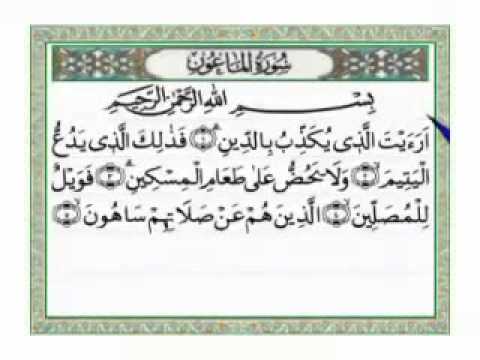 سُورَةُ الْمَاعُونَ
بِسْمِ اللهِ الرَّحْمٰنِ الرَّحِيمِ
اَرَءَيْتَ الَّذِى يُكَذِّبُ بِالدِّينِ ۝١ فَذٰلِكَ الَّذِى يَدُعُّ
الْيَتِيمَ ۝٢ وَلَا يَحُضُّ عَلٰى طَعَامِ الْمِسْكِينِ ۝٣ فَوَيْلٌ
لِلْمُصَلِّينَ ۝٤ الَّذِينَ هُمْ عَنْ صَلَاتِهِمْ سَاهُونَ ۝٥